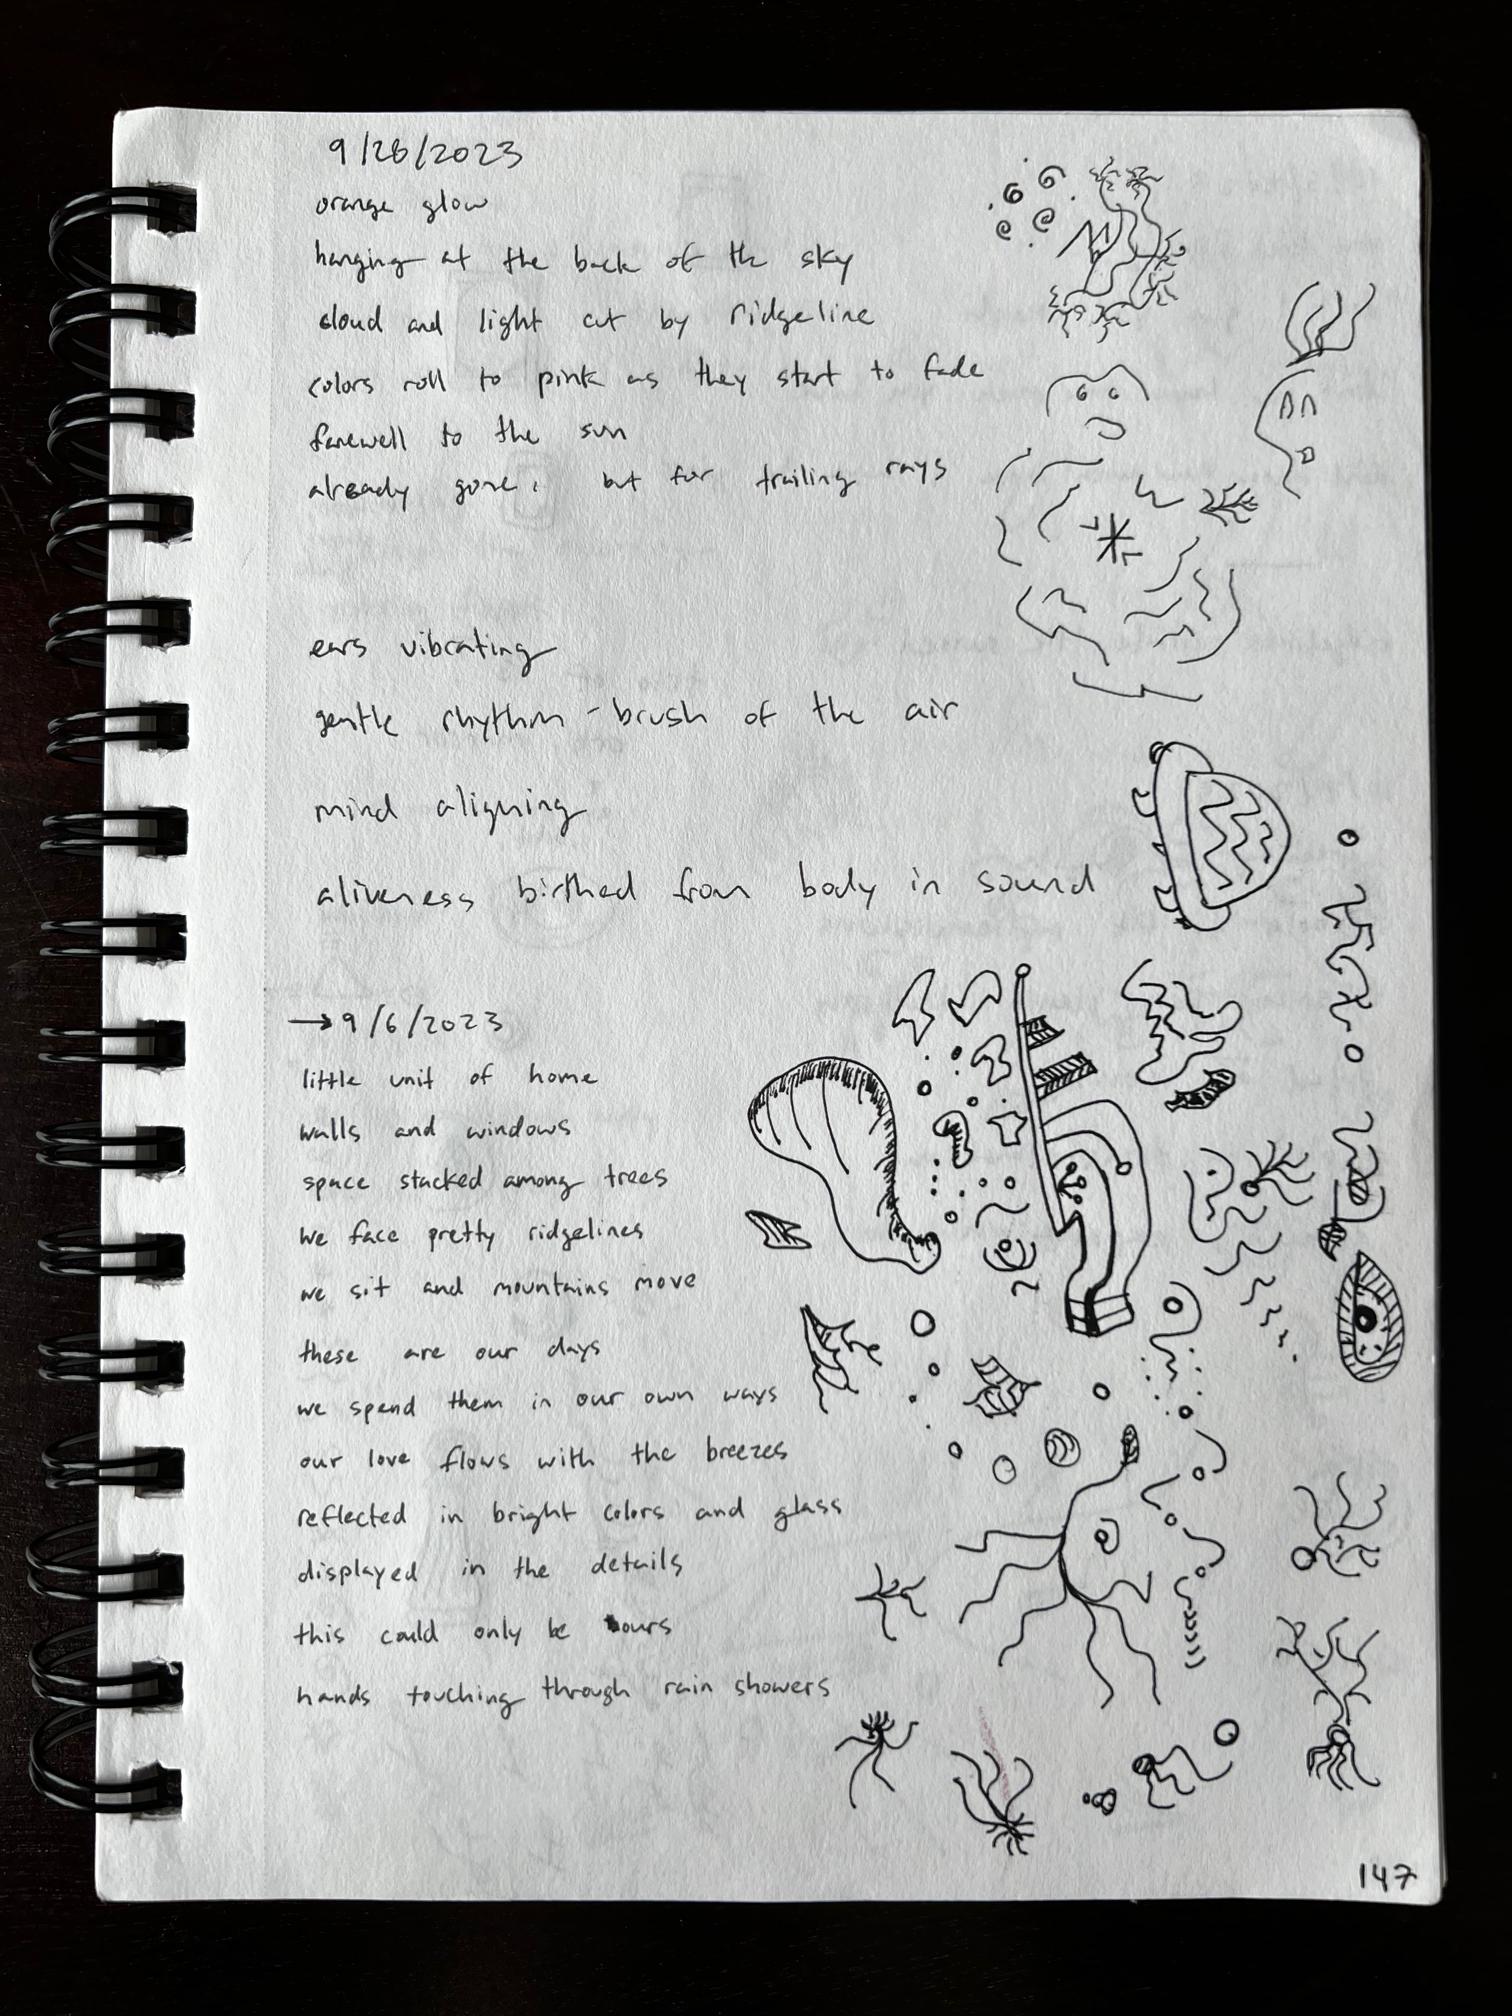 9/28/2023
orange glow
hanging at the back of the sky
cloud and light cut by ridgeline
colors roll to pink as they start to fade
farewell to the sun
already gone, but for trailing rays
ears vibrating
gentle rhythm - brush of the air
mind aligning
aliveness birthed from body in sound
→ 9/6/2023
little unit of home
walls and windows
space stacked among trees
we face pretty ridgelines
we sit and mountains move
these are our days
we spend them in our own ways
our love flows with the breezes
reflected in bright colors and glass
displayed in the details
this could only be ours
hands touching through rain showers
147